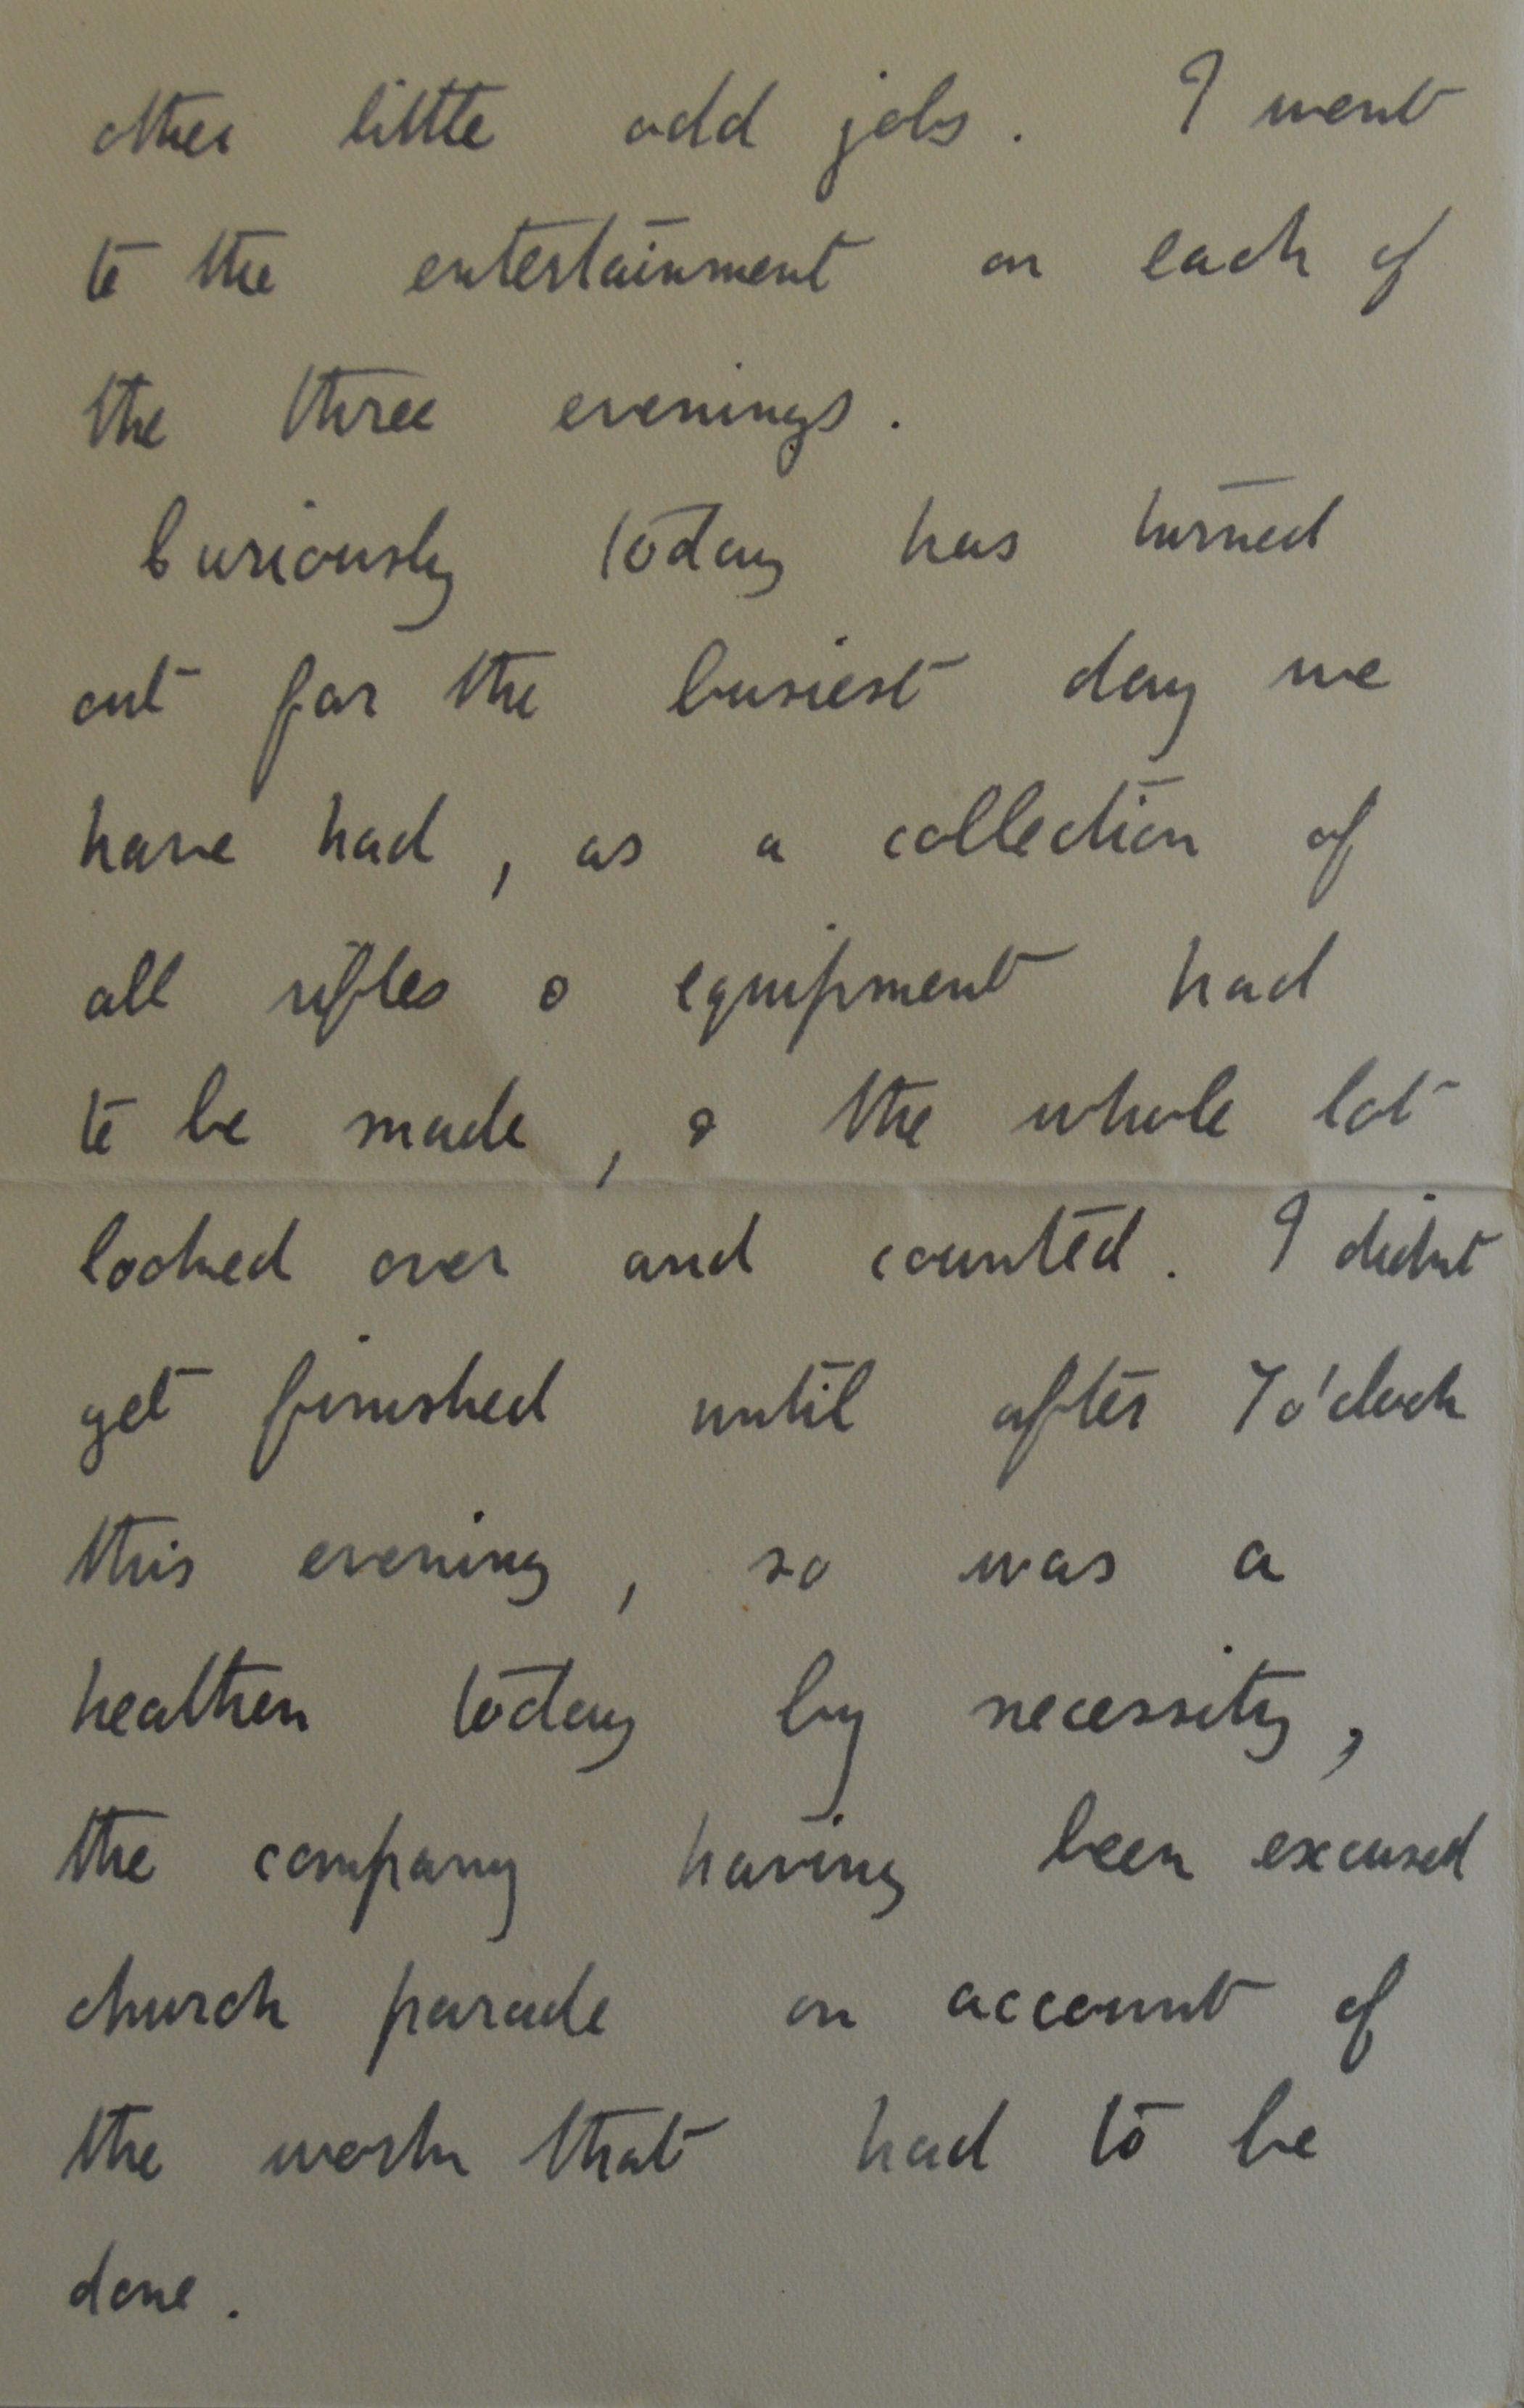 other little odd jobs. I went
to the entertainment on each of
the three evenings.
Curiously today has turned
out for the busiest day we
have had, as a collection of
all rifles & equipment had
to be made, & the whole lot
looked over and counted. I didnt
get finished until after 7 o'clock
this evening, so was a
heathen today by necessity,
the company having been excused
church parade on account of
the work that had to be
done.